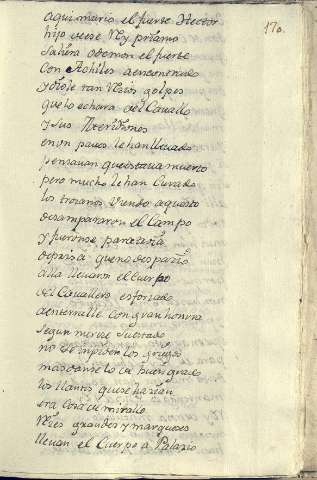 170.
aqui murio el fuerte Hector
hijo de ese Rey priamo
saliera odemon el fuerte
con Achiles a encontrado
y diole tan recios golpes
que lo echara del Cavallo
y sus
en un paves le han llevado
pensavan que estava muerto
pero mucho le han Curado
los troianos Viendo aquesto
desampararon el Campo
y fueronse para
deprisa que no despazio
alla llevaron el cuerpo
del Cavallero esforzado
a enterralle con gran honrra
segun merese su estado
no se lo impiden los griegos
mas danselo de buen grado
los llantos que se hazian
era Cosa de mirallo
Reies grandes y marqueses
llevan el Cuerpo a Palazio